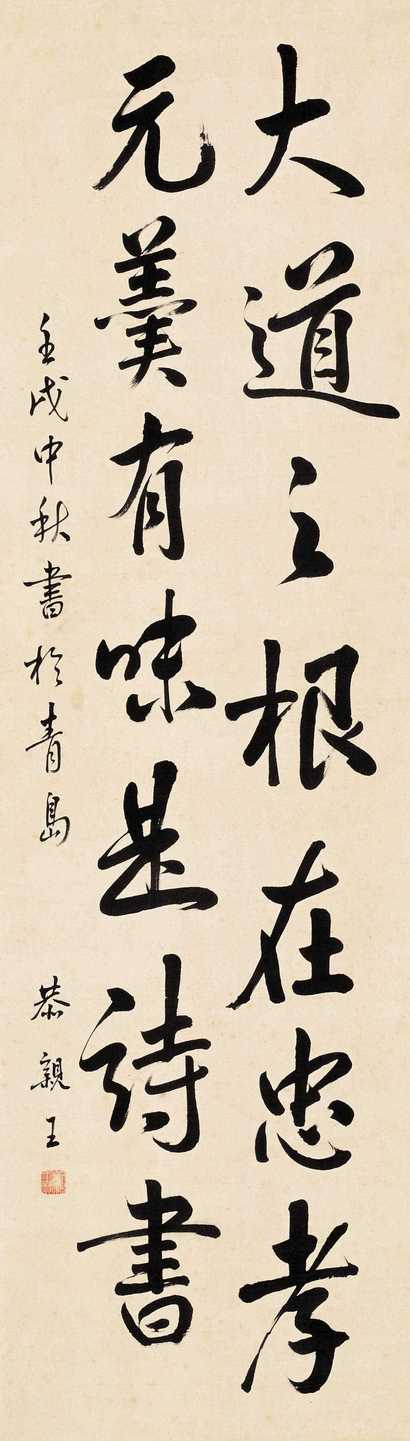 大道之根在忠孝
元羹有味是詩書
壬戌中秋書於青島
恭親王